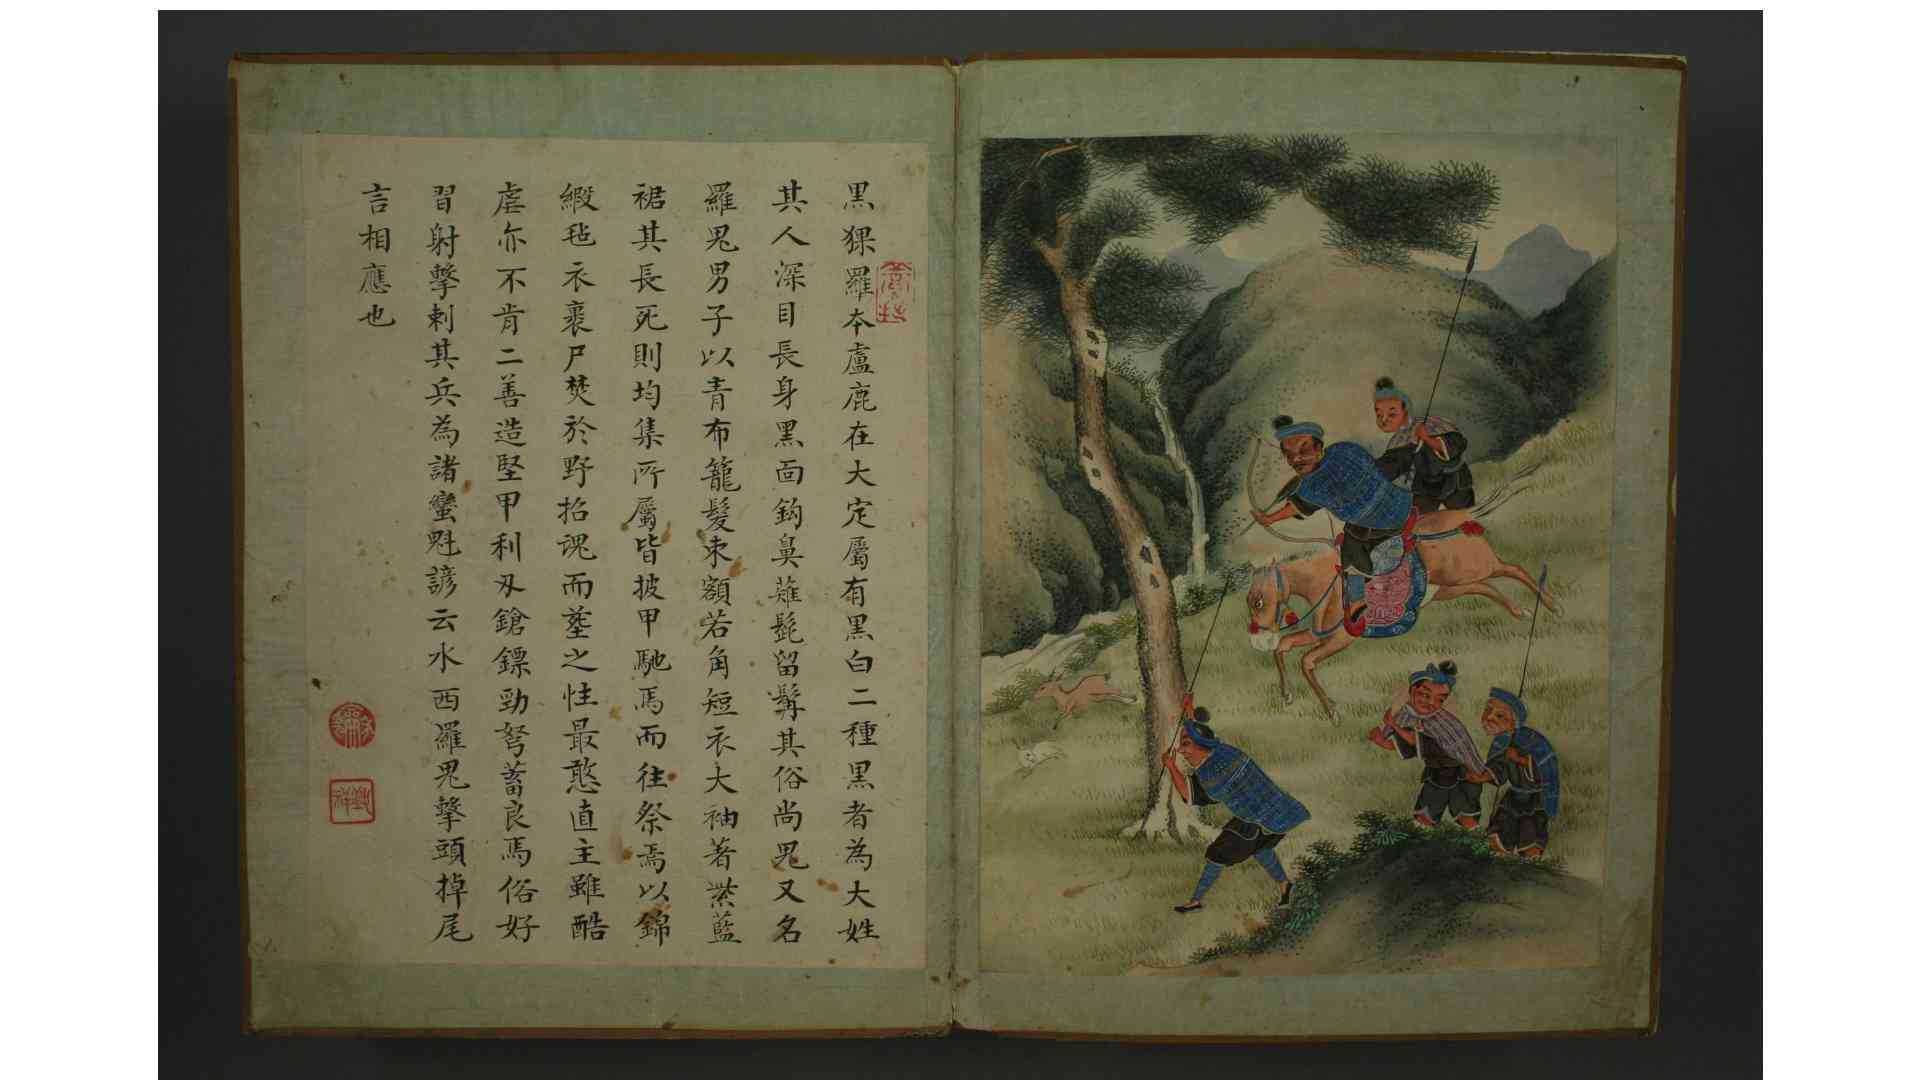 黒猓羅本盧鹿在大定屬有黒白二種黒者為大姓
其人深目長身黒面鈎鼻薙髭留髯其俗尚鬼又名
羅鬼男子以青布籠髮束額若角短衣大袖著紫藍
裾其長死則均集所屬皆披甲馳馬而往祭焉以錦
緞毡衣裹尸焚於野招魂而葬之性最憨直主雖酷
虐亦不肯二善造堅甲利刄鎗鏢勁弩蓄良馬俗好
習射擊刺其兵為諸蠻魁諺云水西羅鬼擊頭掉尾
言相應也